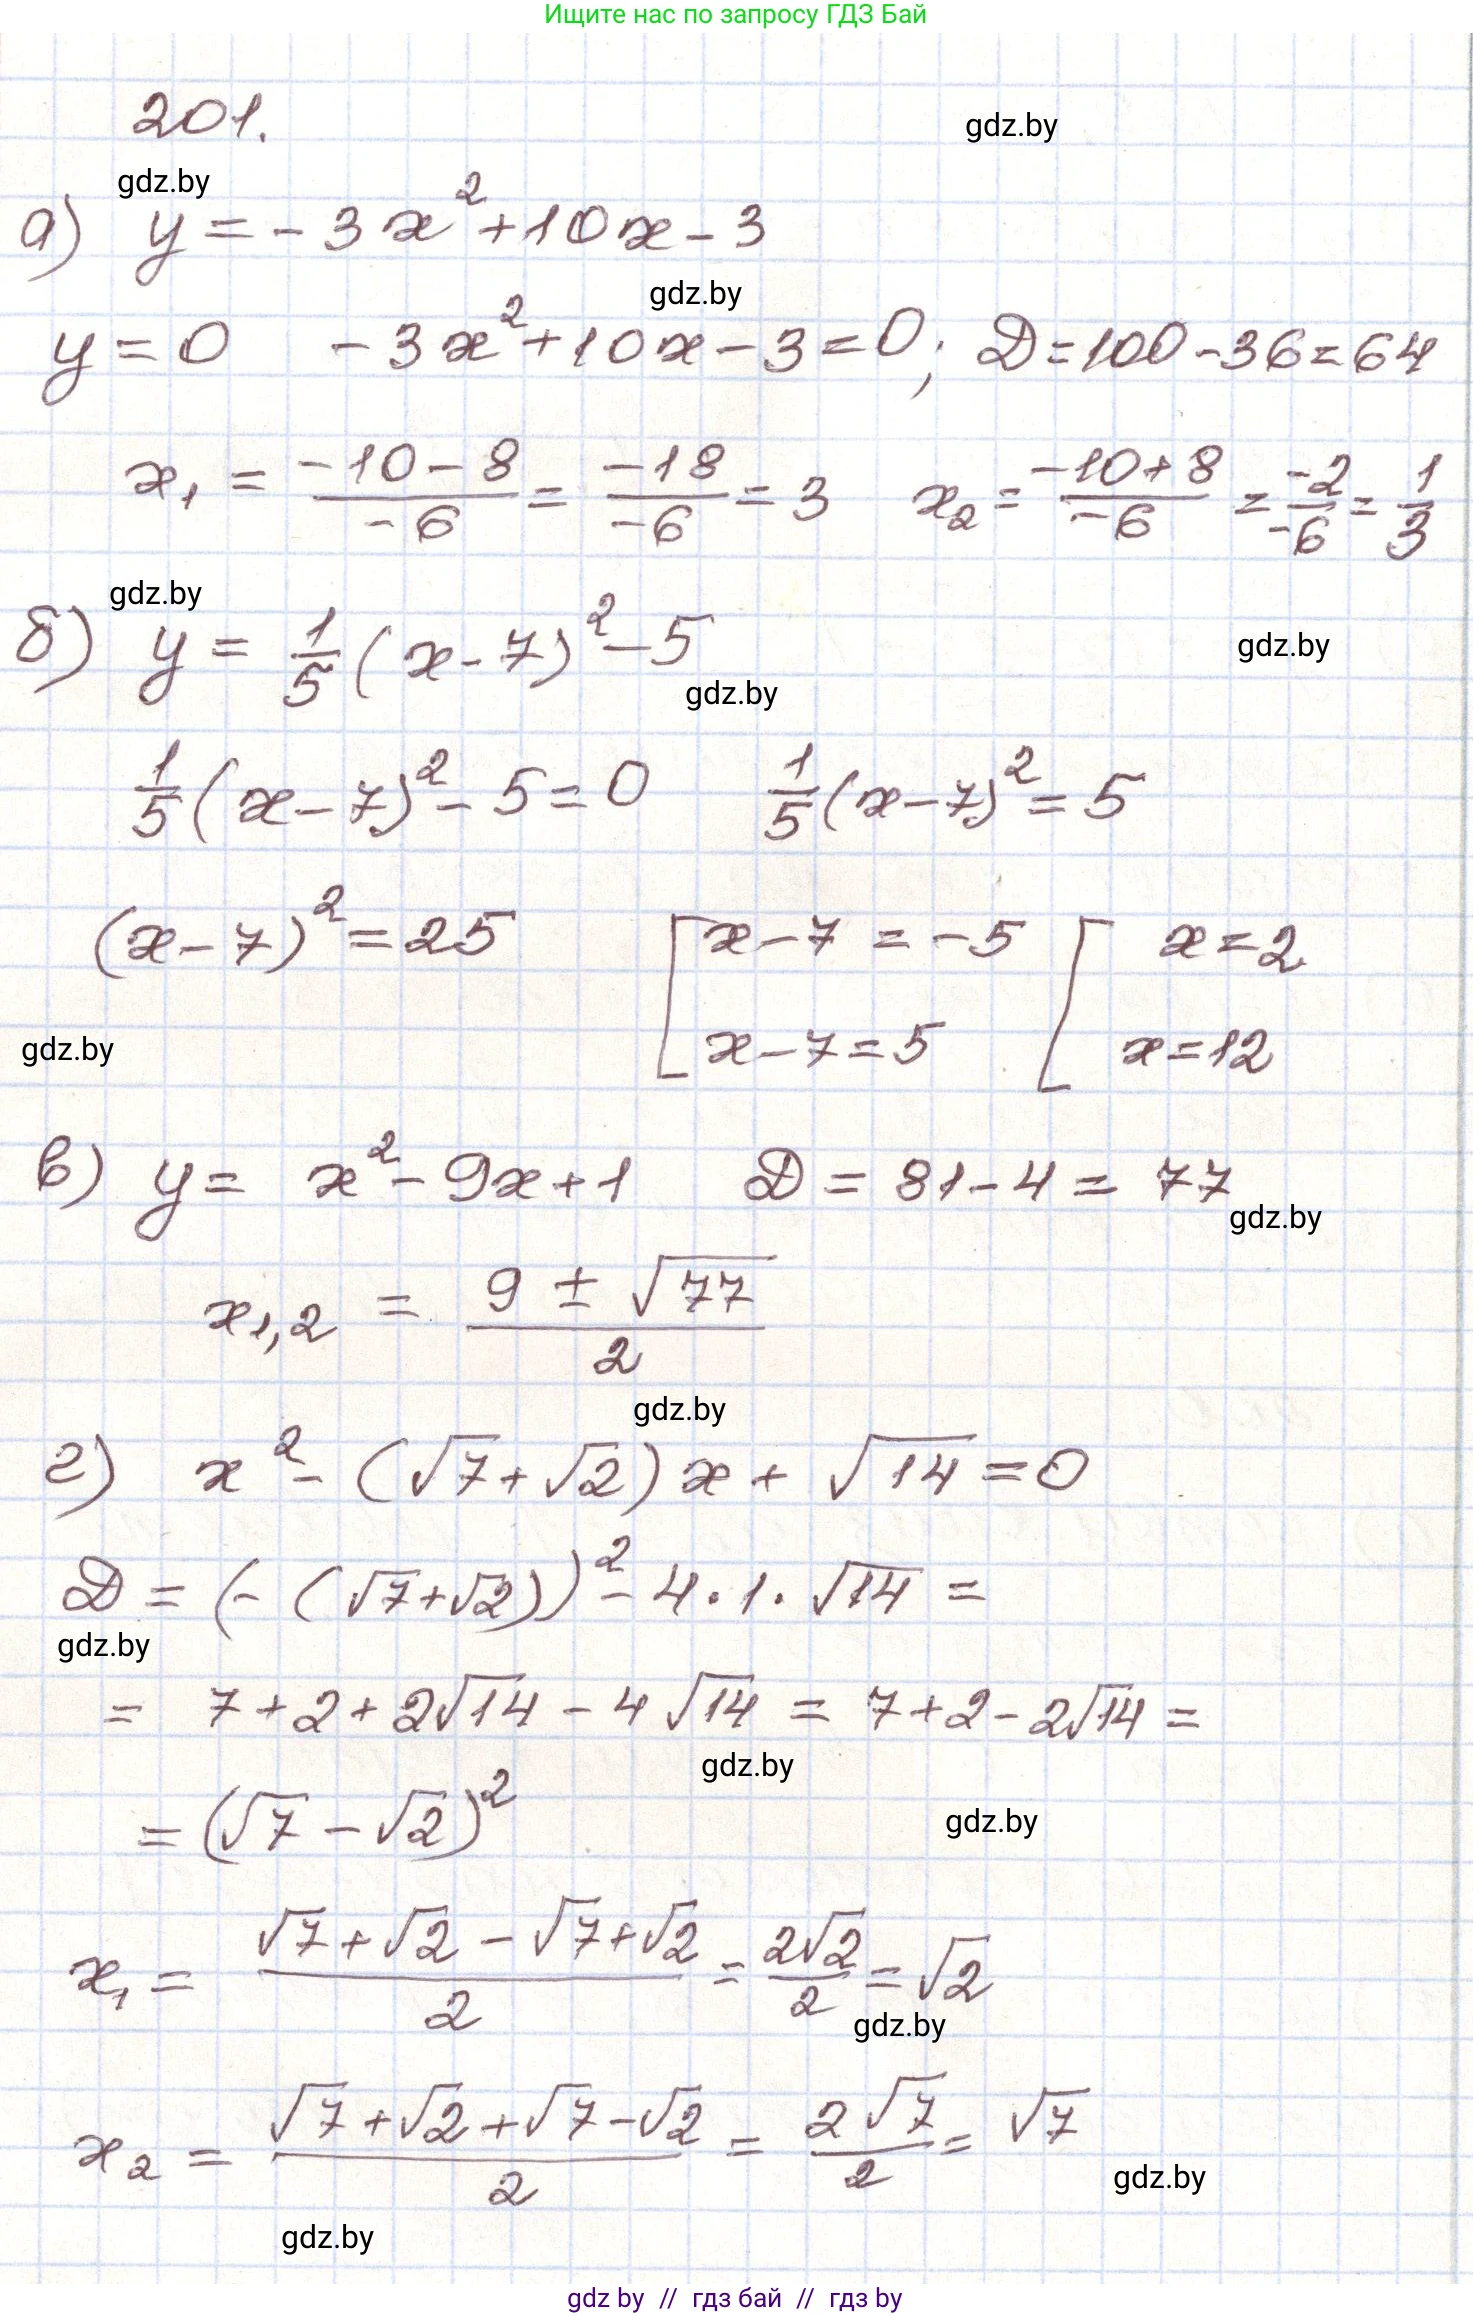 Ищите нас по запросу ГДЗ Бай
201.
gdz.by
gdz.by
а) y = -3x² + 10x - 3
gdz.by
y = 0   -3x² + 10x - 3 = 0; D = 100 - 36 = 64
x₁ = (-10 - 8)/(-6) = (-18)/(-6) = 3   x₂ = (-10 + 8)/(-6) = (-2)/(-6) = 1/3
gdz.by
б) y = 1/5 (x - 7)² - 5
gdz.by
gdz.by
1/5 (x - 7)² - 5 = 0   1/5 (x - 7)² = 5
(x - 7)² = 25   [ x - 7 = -5   [ x = 2
x - 7 = 5   x = 12
gdz.by
в) y = x² - 9x + 1   D = 81 - 4 = 77
gdz.by
x₁,₂ = (9 ± √77)/2
gdz.by
г) x² - (√7 + √2)x + √14 = 0
D = (-(√7 + √2))² - 4 · 1 · √14 =
gdz.by
= 7 + 2 + 2√14 - 4√14 = 7 + 2 - 2√14 =
gdz.by
= (√7 - √2)²
gdz.by
x₁ = (√7 + √2 - √7 + √2)/2 = 2√2/2 = √2
gdz.by
x₂ = (√7 + √2 + √7 - √2)/2 = 2√7/2 = √7
gdz.by
gdz.by
gdz by // гдз бай // гдз by